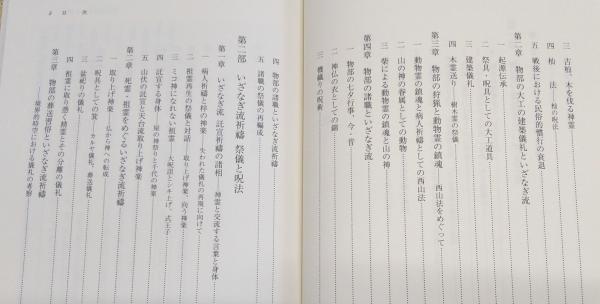 三 古樹、木を伐る神霊
四 杣法 杣の呪法
五 戦後における民俗的慣行の衰退
第二章 物部の大工の建築儀礼といざなぎ流
一 起源伝承
二 祭具・呪具としての大工道具
三 建築儀礼
四 木霊送り 樹木霊の祭儀
第三章 物部の狩猟と動物霊の鎮魂 西山法をめぐって
一 動物霊の鎮魂と病人祈禱としての西山法
二 山の神の眷属としての動物
三 柴による動物霊の鎮魂と山の神
第四章 物部の諸職といざなぎ流
一 物部の七夕行事、今・昔
二 神仏の衣としての錦
三 機織りの呪術
四 物部の諸職といざなぎ流祈禱
五 諸職の祭儀の再編成
第二部 いざなぎ流祈禱 祭儀と呪法
第一章 いざなぎ流 託宣祈禱の諸相 神霊と交流する言葉と身体
一 病人祈禱と梓の神楽 失われた儀礼の再現に向けて
二 祖霊再生の祭儀と対話 取り上げ神楽・向う神楽
三 ミコ神になれない祖霊 大呪詛とシキ上げ、式王子
四 託宣する身体 屋の神祭りと千代の神楽
五 山伏の託宣と天台流取り上げ神楽
第二章 死霊・祖霊をめぐるいざなぎ流祈禱
一 取り上げ神楽 仏から神への転成
二 呪具としての箕 カルヤ儀礼、葬送儀礼
三 盆祀りの儀礼
四 祖霊に取り憑く精霊とその分離の儀礼
第三章 物部の葬送習俗といざなぎ流祈禱
境界的時空における儀礼の考察
目次